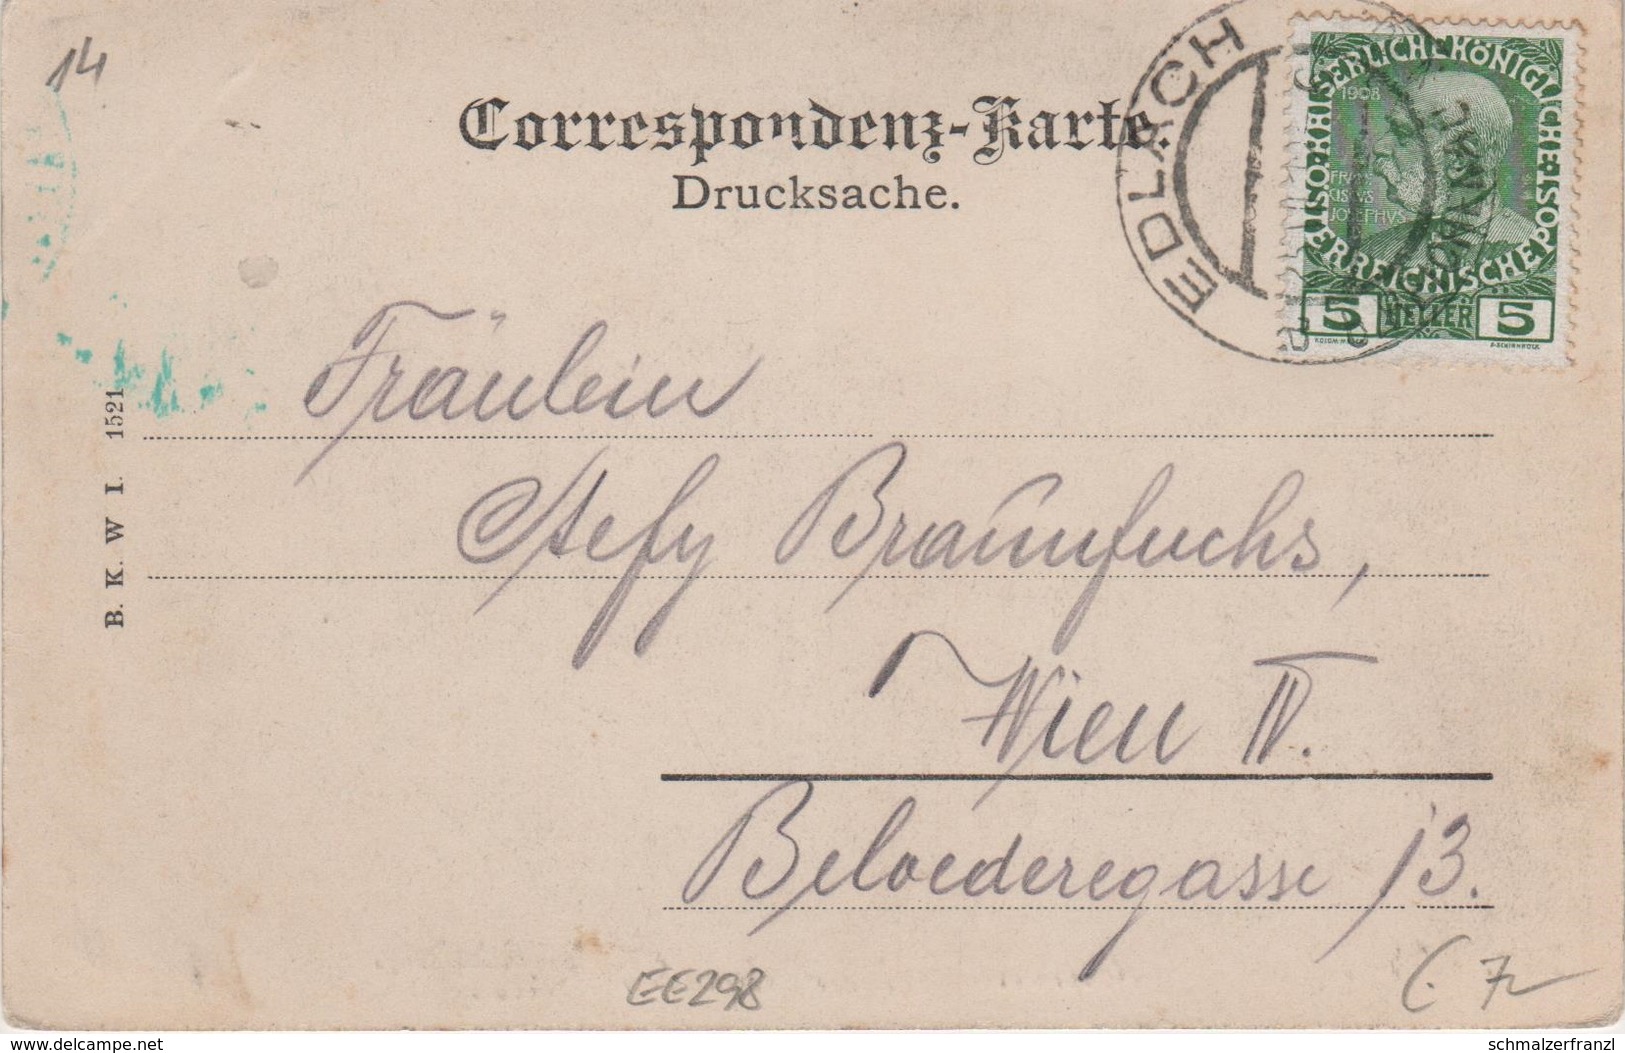 14
Correspondenz-Karte.
Drucksache.
EDLACH
KAISERLICHE KÖNIGLICHE
ÖSTERREICHISCHE POST
1908
FRAN
CISCVS
JOSEPHVS
5 HELLER 5
B. K. W I. 1521
Fräulein
Stefy Braunfuchs,
Wien IV.
Belvederegasse 13.
EE298
7
www.delcampe.net
schmalzerfranzl